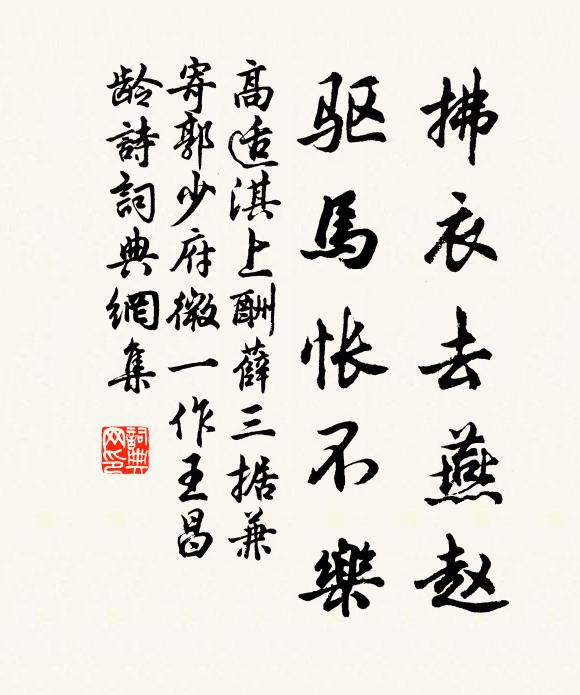 拂衣去燕赵
驱馬怅不樂
高适淇上酬薛三据兼
寄郭少府微一作王昌
龄詩詞典網集
詞典
网印